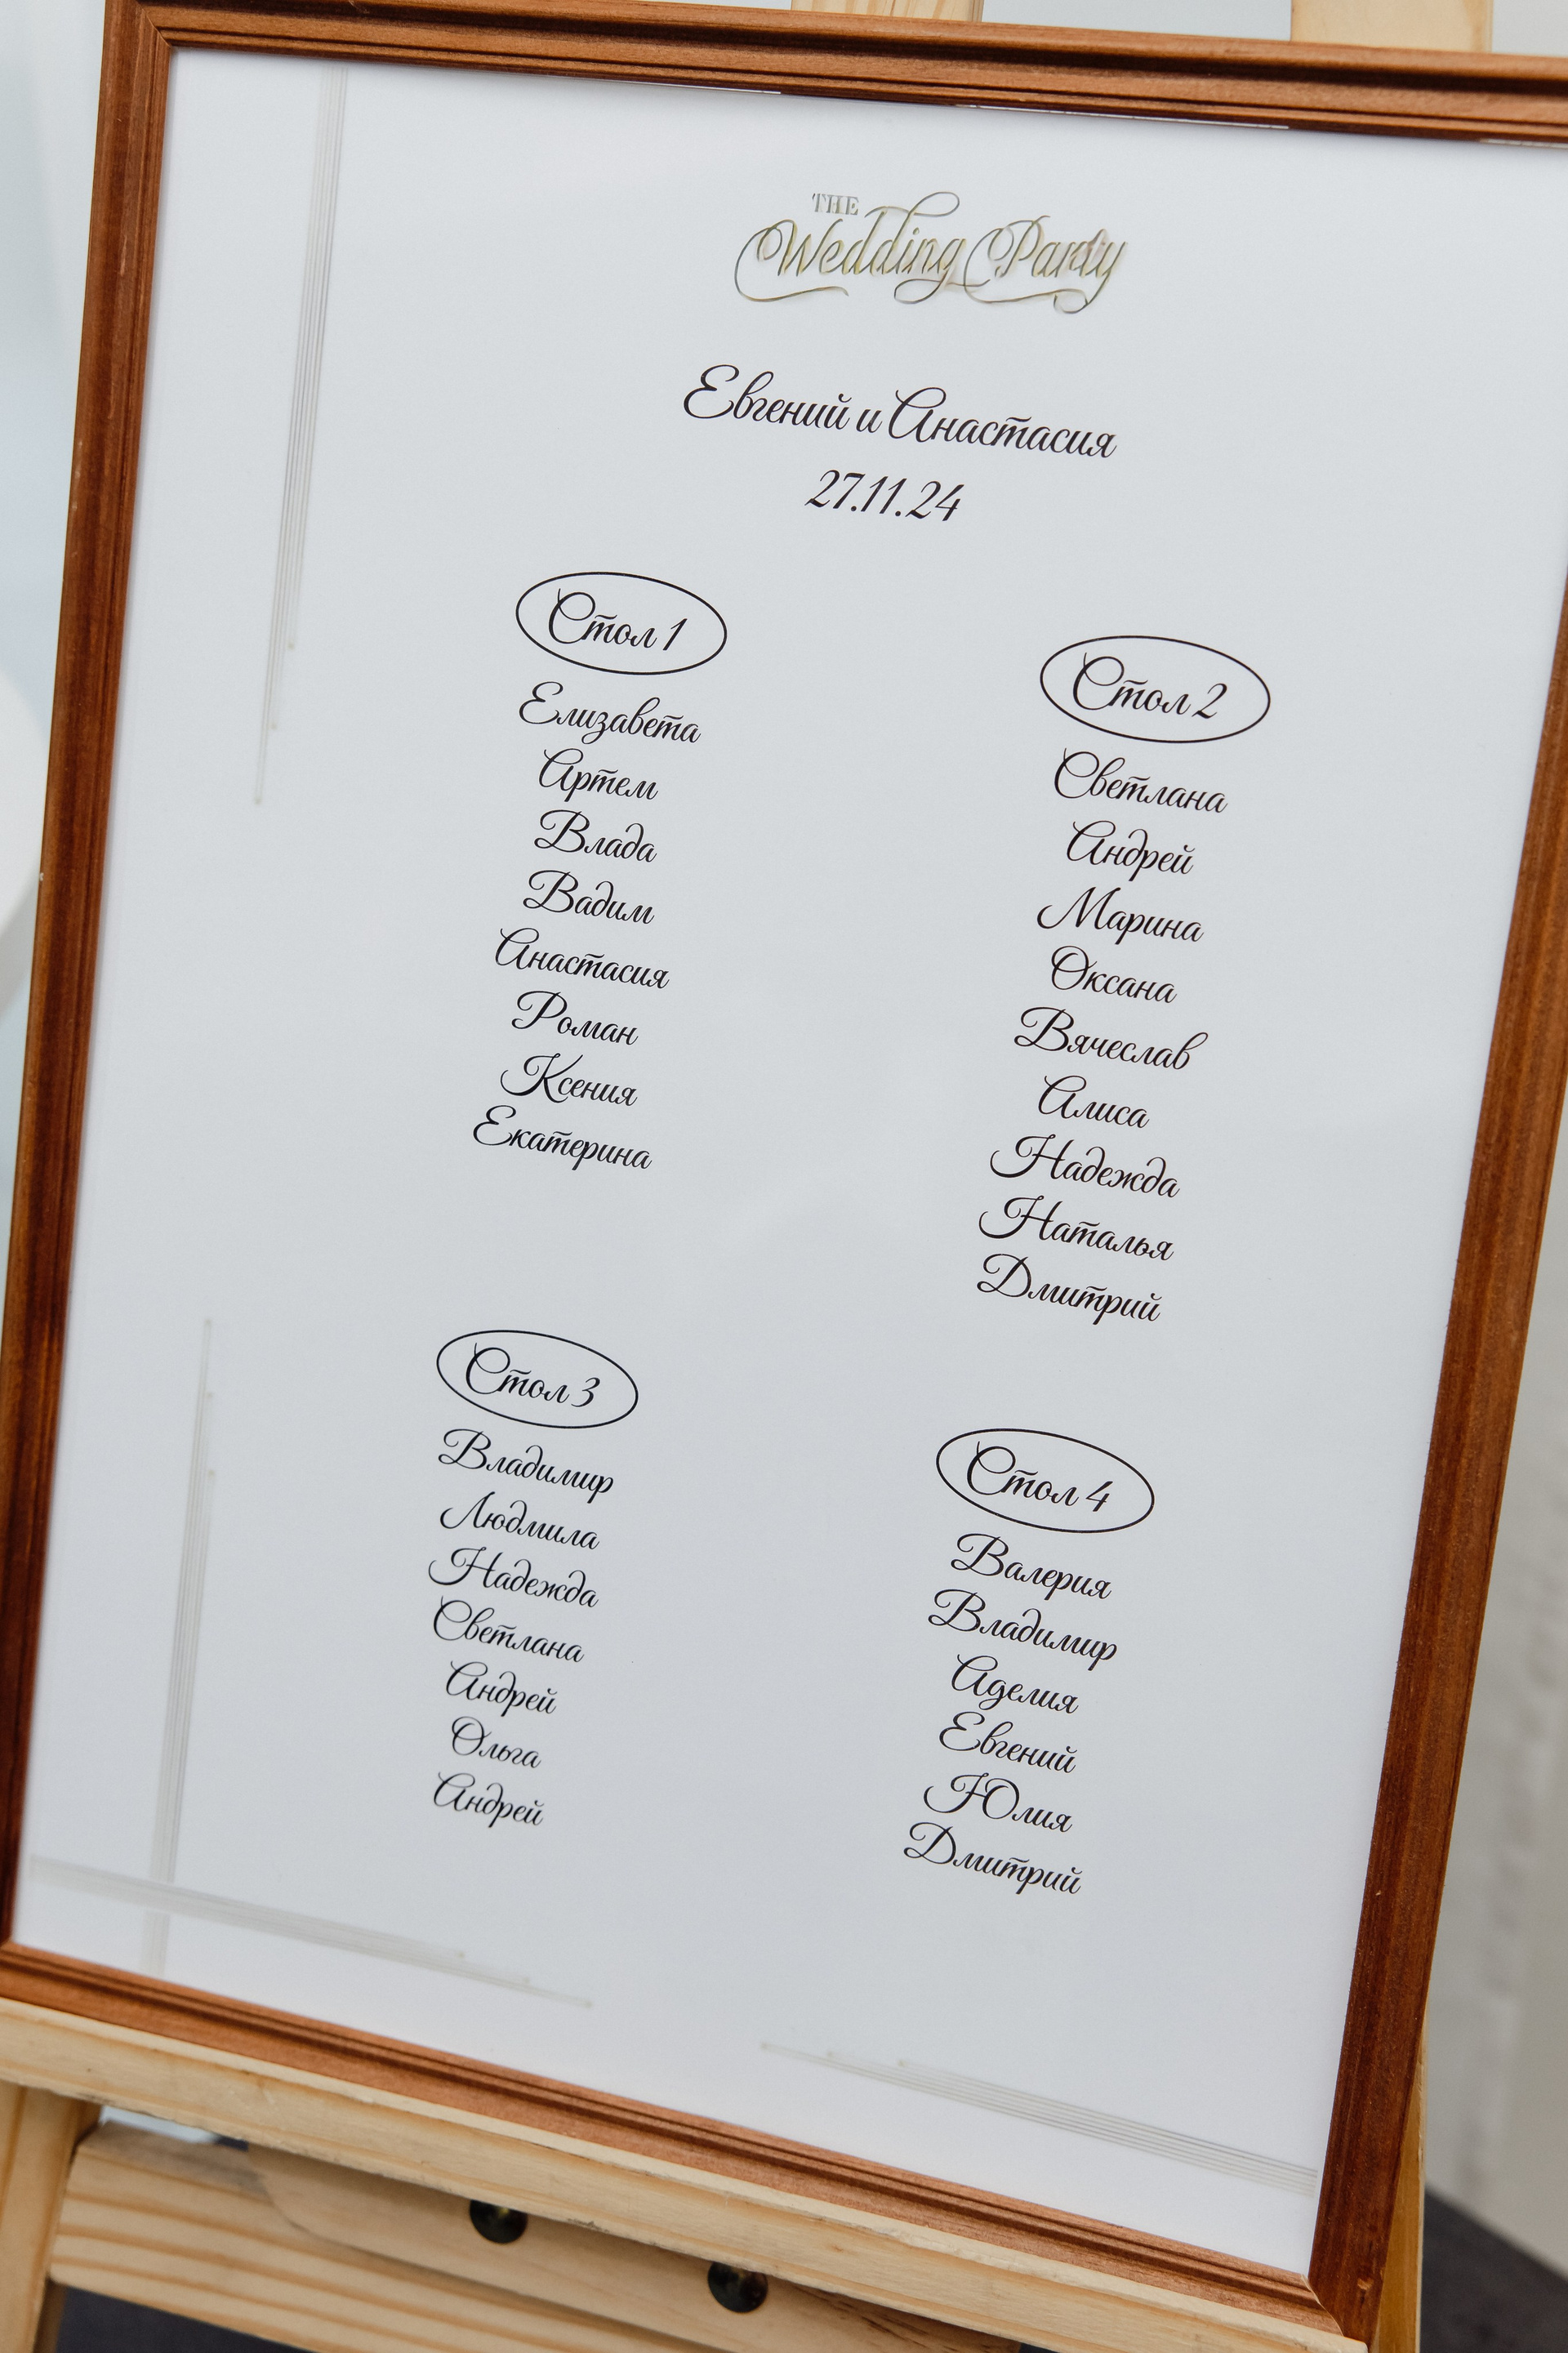 THE
Wedding Party
Евгений и Анастасия
27.11.24
Стол 1
Елизавета
Артем
Влада
Вадим
Анастасия
Роман
Ксения
Екатерина
Стол 2
Светлана
Андрей
Марина
Оксана
Вячеслав
Алиса
Надежда
Наталья
Дмитрий
Стол 3
Владимир
Людмила
Надежда
Светлана
Андрей
Ольга
Андрей
Стол 4
Валерия
Владимир
Аделия
Евгений
Юлия
Дмитрий